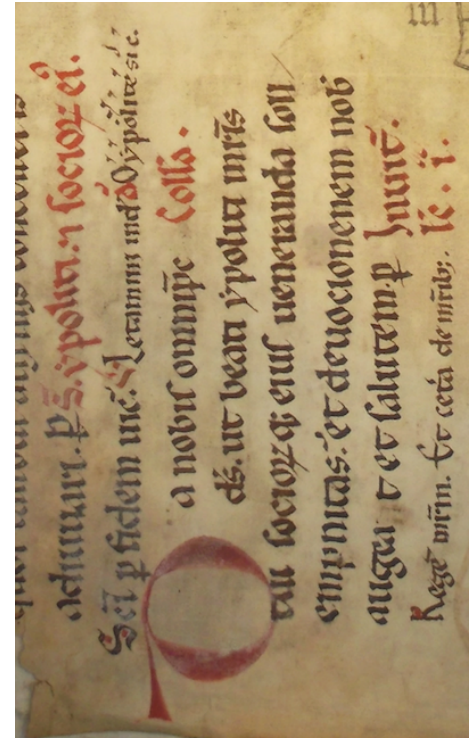 adiuuari. ꝑ S. ypoliti ⁊ socioꝝ ei.
Sc̄i ꝑ fidem uic̄. Letamini in d̄ O ypolite si c.
Da nobis omnip̄c Coll̄a.
ds̄. ut beati ypoliti mr̄is
tui socioꝝqꝫ eius ueneranda soll
empnitas. et deuocionenem nob̄
augeat et salutem. ꝑ Inuit̄.
Regē mr̄m. Et cet̄a de mr̄ibꝫ. lc̄. i.